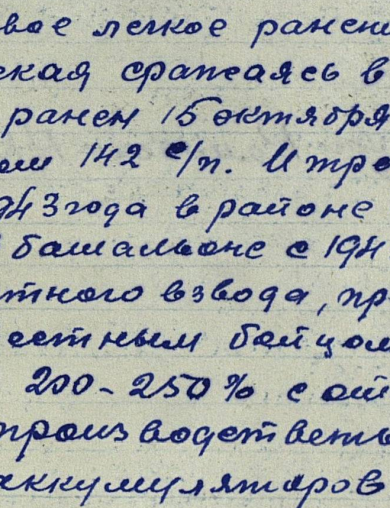 вое легкое ранени
ская сражаясь в
ранен 15 октября
ом 142 с/п. И тро
943 года в районе
батальоне с 194
тного взвода, пр
естным бойцом
200-250% с от
производствен
аккумуляторов